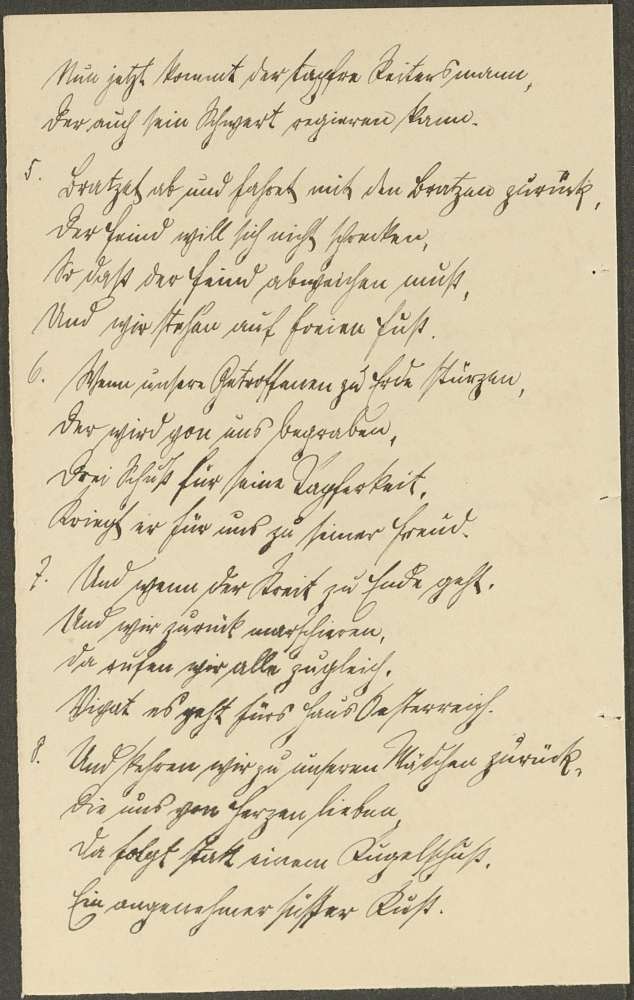 Nun jetzt kommt der tapfre Reitersmann,
Der auch sein Schwert regieren kann.
5. Bratzet ab und fahret mit den Bratzen zurück,
Der Feind will sich nicht schrecken,
So daß der Feind abweichen muß,
Und wir stehen auf freien Fuß.
6. Wenn unsere Getroffenen zu Erde stürzen,
Der wird von uns begraben,
Drei Schuß für seine Tapferkeit,
Kriegt er für uns zu seiner Freud.
7. Und wenn der Streit zu Ende geht.
Und wir zurück marschieren,
Da rufen wir alle zugleich,
Vivat es geht fürs Haus Oesterreich.
8. Und kehren wir zu unseren Mädchen zurück,
Die uns von Herzen lieben,
Da folgt statt einem Kugelschuß,
Ein angenehmer süßer Kuß.